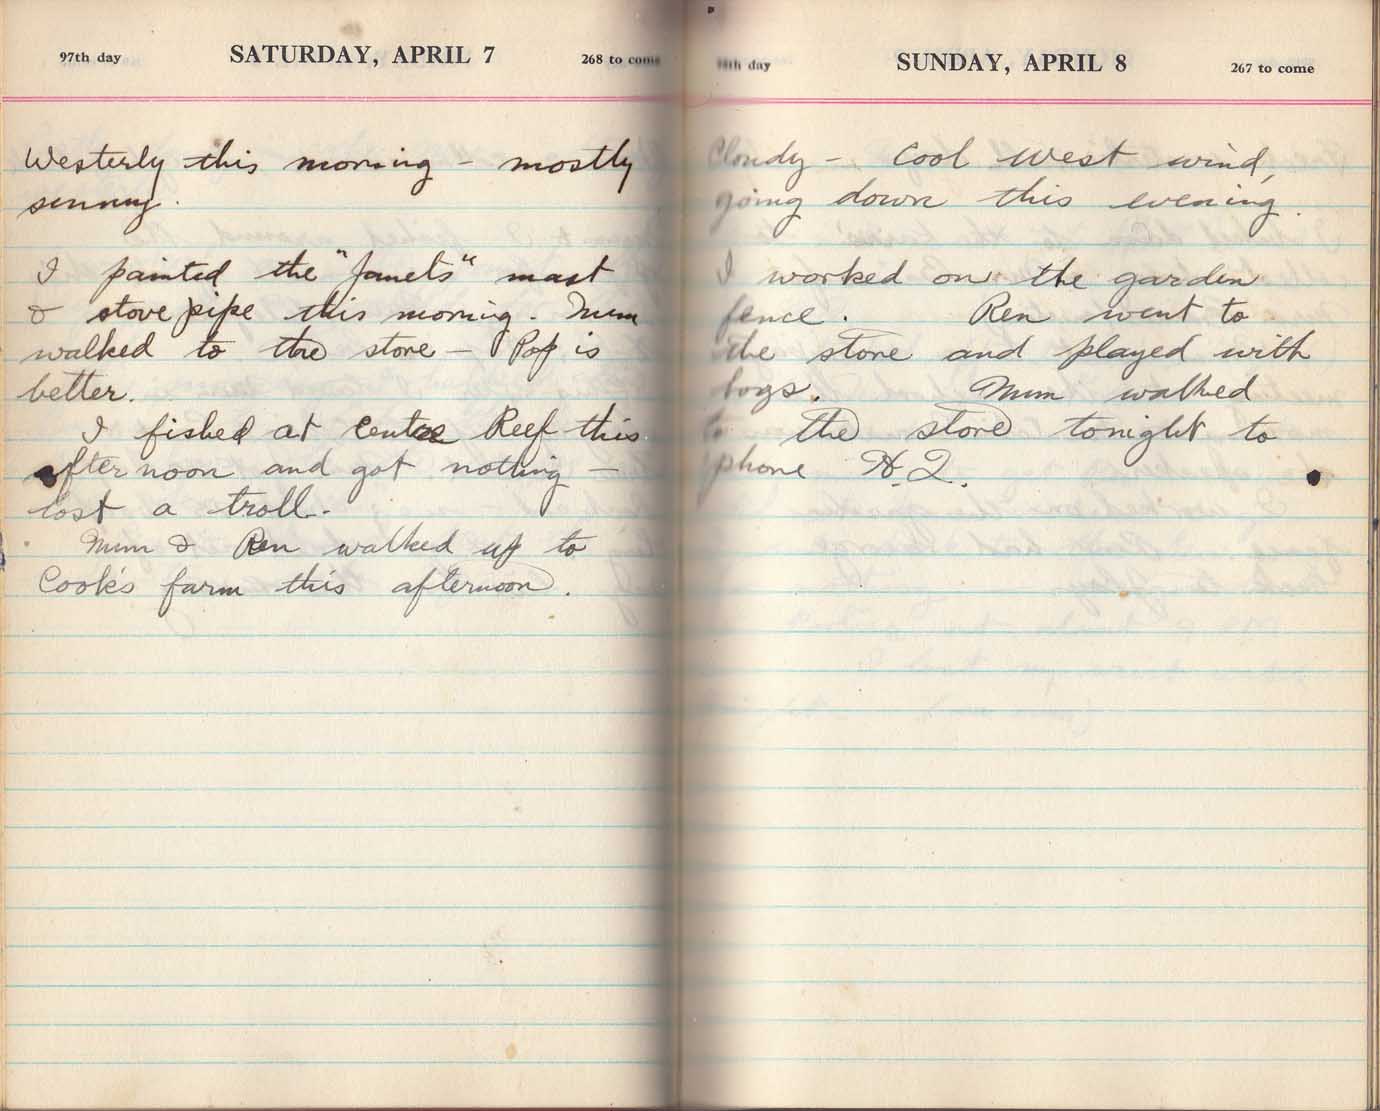 97th day SATURDAY, APRIL 7 268 to come
Westerly this morning - mostly
sunny.
I painted the "Janet's" mast
& stove pipe this morning. Mum
walked to the store - Pop is
better.
I fished at Centre Reef this
afternoon and got nothing -
lost a troll.
Mum & Ren walked up to
Cook's farm this afternoon.
98th day SUNDAY, APRIL 8 267 to come
Cloudy - Cool West wind,
going down this evening.
I worked on the garden
fence. Ren went to
the store and played with
boys. Mum walked
to the store tonight to
phone H.Q.